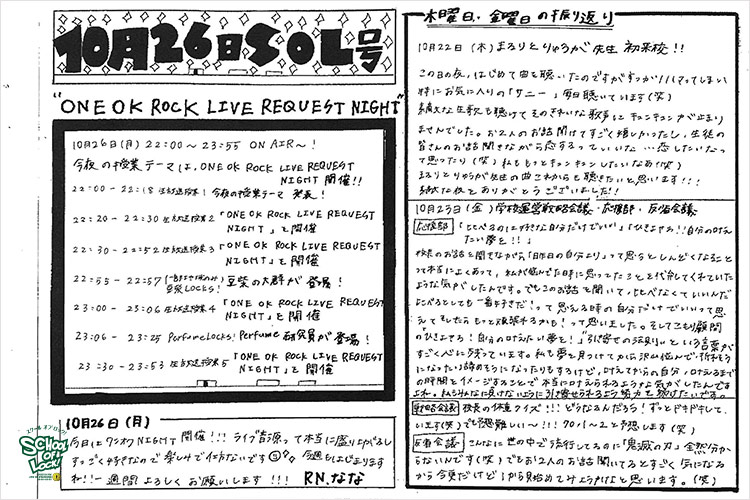 10月26日SOL号
"ONE OK ROCK LIVE REQUEST NIGHT"
10月26日(月) 22:00〜23:55 ON AIR〜!
今夜の授業テーマは、ONE OK ROCK LIVE REQUEST
NIGHT 開催!!
22:00 - 22:18 生放送授業1 今夜の授業テーマ 発表!
22:20 - 22:30 生放送授業2 「ONE OK ROCK LIVE REQUEST
NIGHT」を開催
22:30 - 22:52 生放送授業3 「ONE OK ROCK LIVE REQUEST
NIGHT」を開催
22:55 - 22:57 (一部地域のみ) 豆柴の大群が登場!
豆柴LOCKS!
23:00 - 23:06 生放送授業4 「ONE OK ROCK LIVE REQUEST
NIGHT」を開催
23:06 - 23:25 Perfume LOCKS! Perfume研究員が登場!
23:30 - 23:53 生放送授業5 「ONE OK ROCK LIVE REQUEST
NIGHT」を開催
10月26日(月)
今日はワンオクNIGHT開催!!! ライブ音源って本当に盛り上がるし
すっごく好きなので楽しみで仕方ないです 今週もはじまります
ね!! 一週間よろしくお願いします!!! RN.なな
スクールオブロック!
SCHOOL OF LOCK!
木曜日・金曜日の振り返り
10月22日(木) まるりとりゅうが先生 初来校!!
この日の夜、はじめて曲を聴いたのですがすっかりハマってしまい
特にお気に入りの「サニー」毎日聴いています(笑)
綺麗な生歌も聴けてそのきれいな歌声にキュンキュンが止まり
ませんでした。お2人のお話聞けてすごく嬉しかったし、生徒の
皆さんのお話聞きながら恋するっていいな…恋したいなた
って思ったり(笑)私ももっとキュンキュンしたいなあ(笑)
まるりとりゅうが先生の曲これからも聴きたいと思います!!!
綺麗な夜をありがとうございました!!
10月23日(金) 学校運営戦略会議・応援部・反省会議
応援部 「比べるのは好きな自分だけでいい」「ひきよせろ!!自分の叶え
たい夢を!!」
校長のお話を聞きながら「昨日の自分より」って思うとしんどくなること
って本当によくあって、私が悩んでた時に思ってたことを代弁してくれていた
ような気がしたんです。でもこのお話を聞いて、比べなくていいんだ
比べるとしても一番好きだ!って思える時の自分だけでいいって思
えてそしたらもっと頑張れるかも!って思いました。そしてこもり顧問
のひきよせろ!自分の叶えたい夢を!」"引き寄せの法則"という言葉が
すごく心に残っています。私も夢を見つけてから沢山悩んで、折れそう
になったり諦めそうになったりもするけど、叶えてからの自分、叶えるまで
の時間をイメージすることで本当に叶えられるような気がしたんですよ
ね。
戦略会議 校長の体重クイズ!!! どうなるんだろう!ずっとドキドキして
います(笑)でも予想難しい〜!!!
反省会議 こんなに世の中で流行してるのに「鬼滅の刃」全然分か
らないんです(笑)でもお2人のお話聞いてるとすごく気になる
から今更だけど1から見始めてみようかなと思います。(笑)